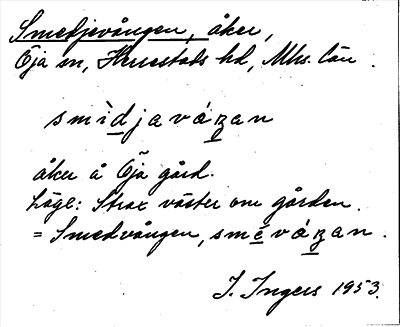 Smedjevången, åker,
Öja sn, Herrestads hd, Mlhs. län.
smìdjaváŋan
åker å Öja gård.
Läge: Strax väster om gården.
= Smedvången, smèváŋan.
I. Ingers 1953.